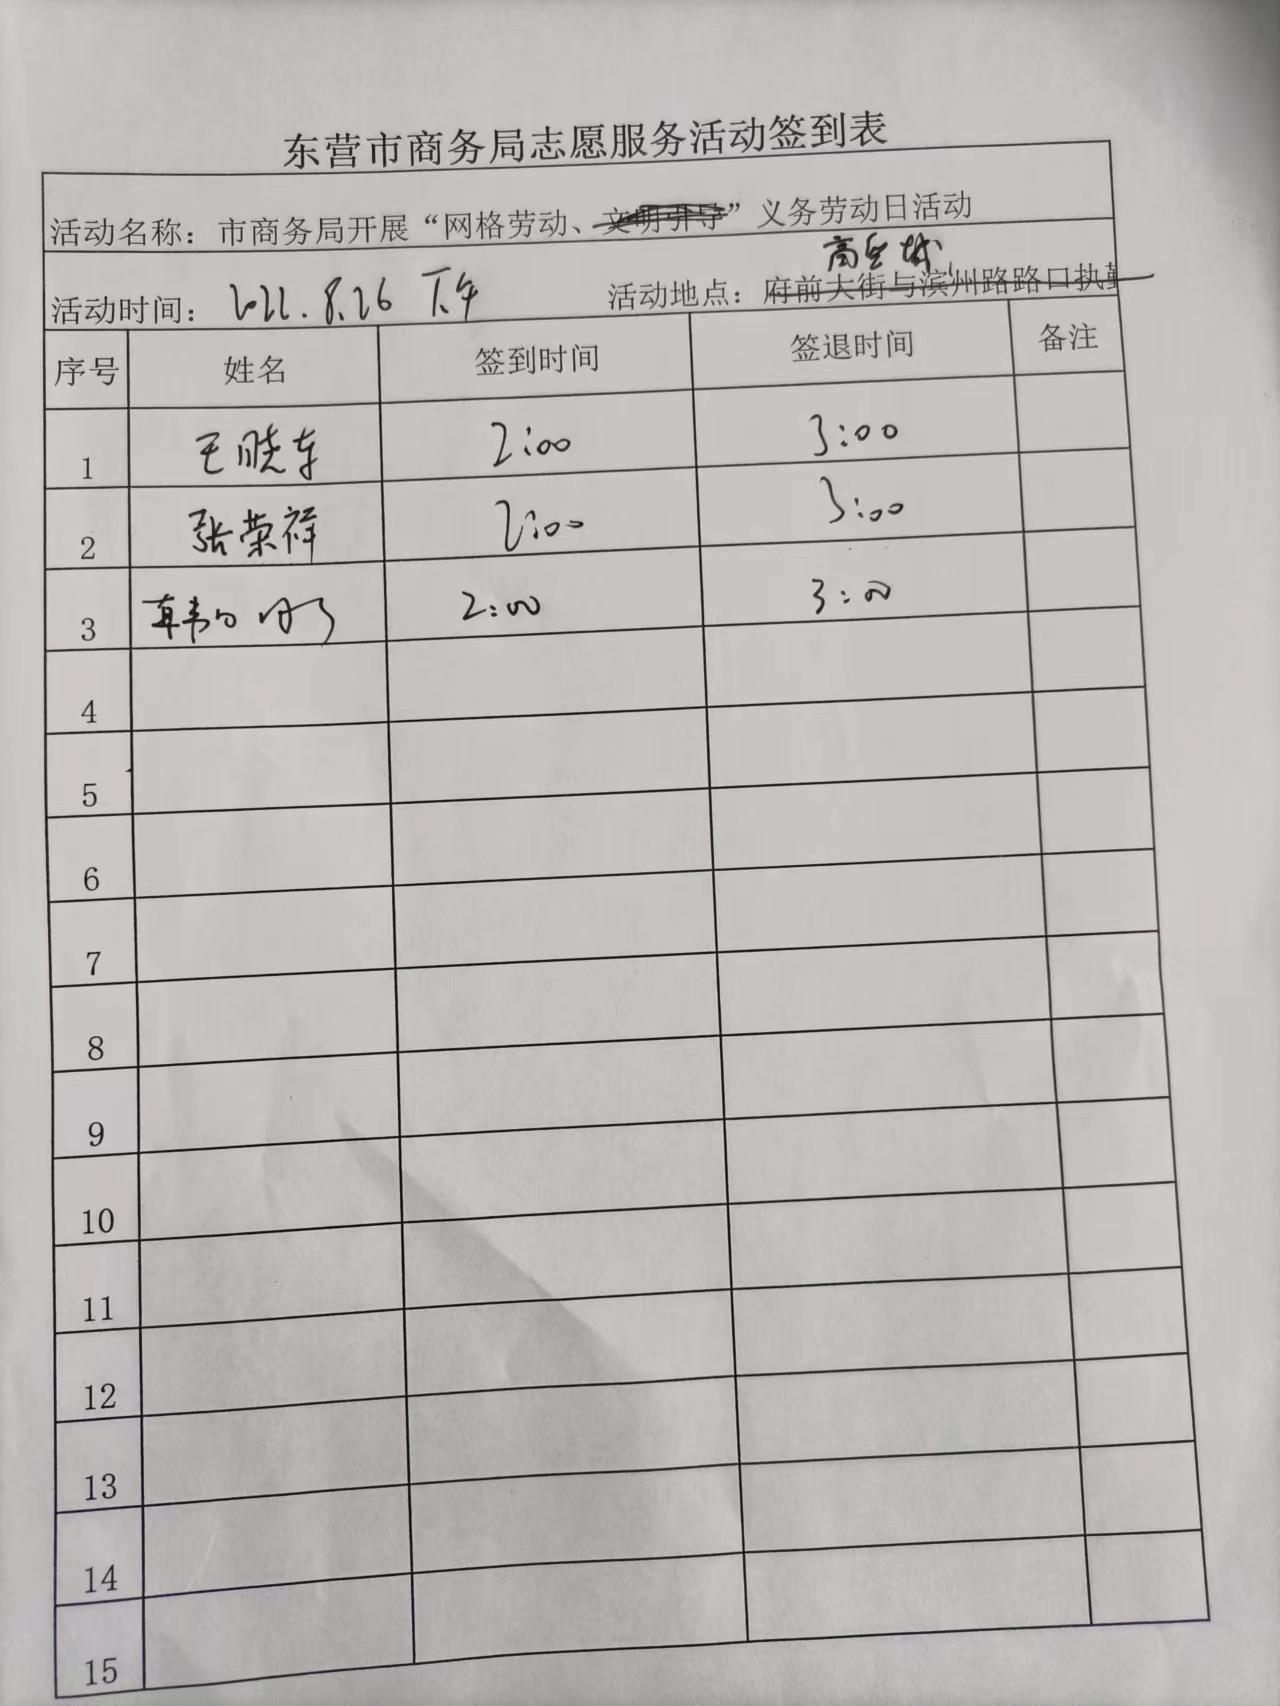 东营市商务局志愿服务活动签到表
活动名称：市商务局开展“网格劳动、文明引导”义务劳动日活动
活动时间：2022.8.26 下午 活动地点：府前大街与滨州路路口执勤
序号 姓名 签到时间 签退时间 备注
1 王晓东 2:00 3:00
2 张荣祥 2:00 3:00
3 2:00 3:00
4
5
6
7
8
9
10
11
12
13
14
15